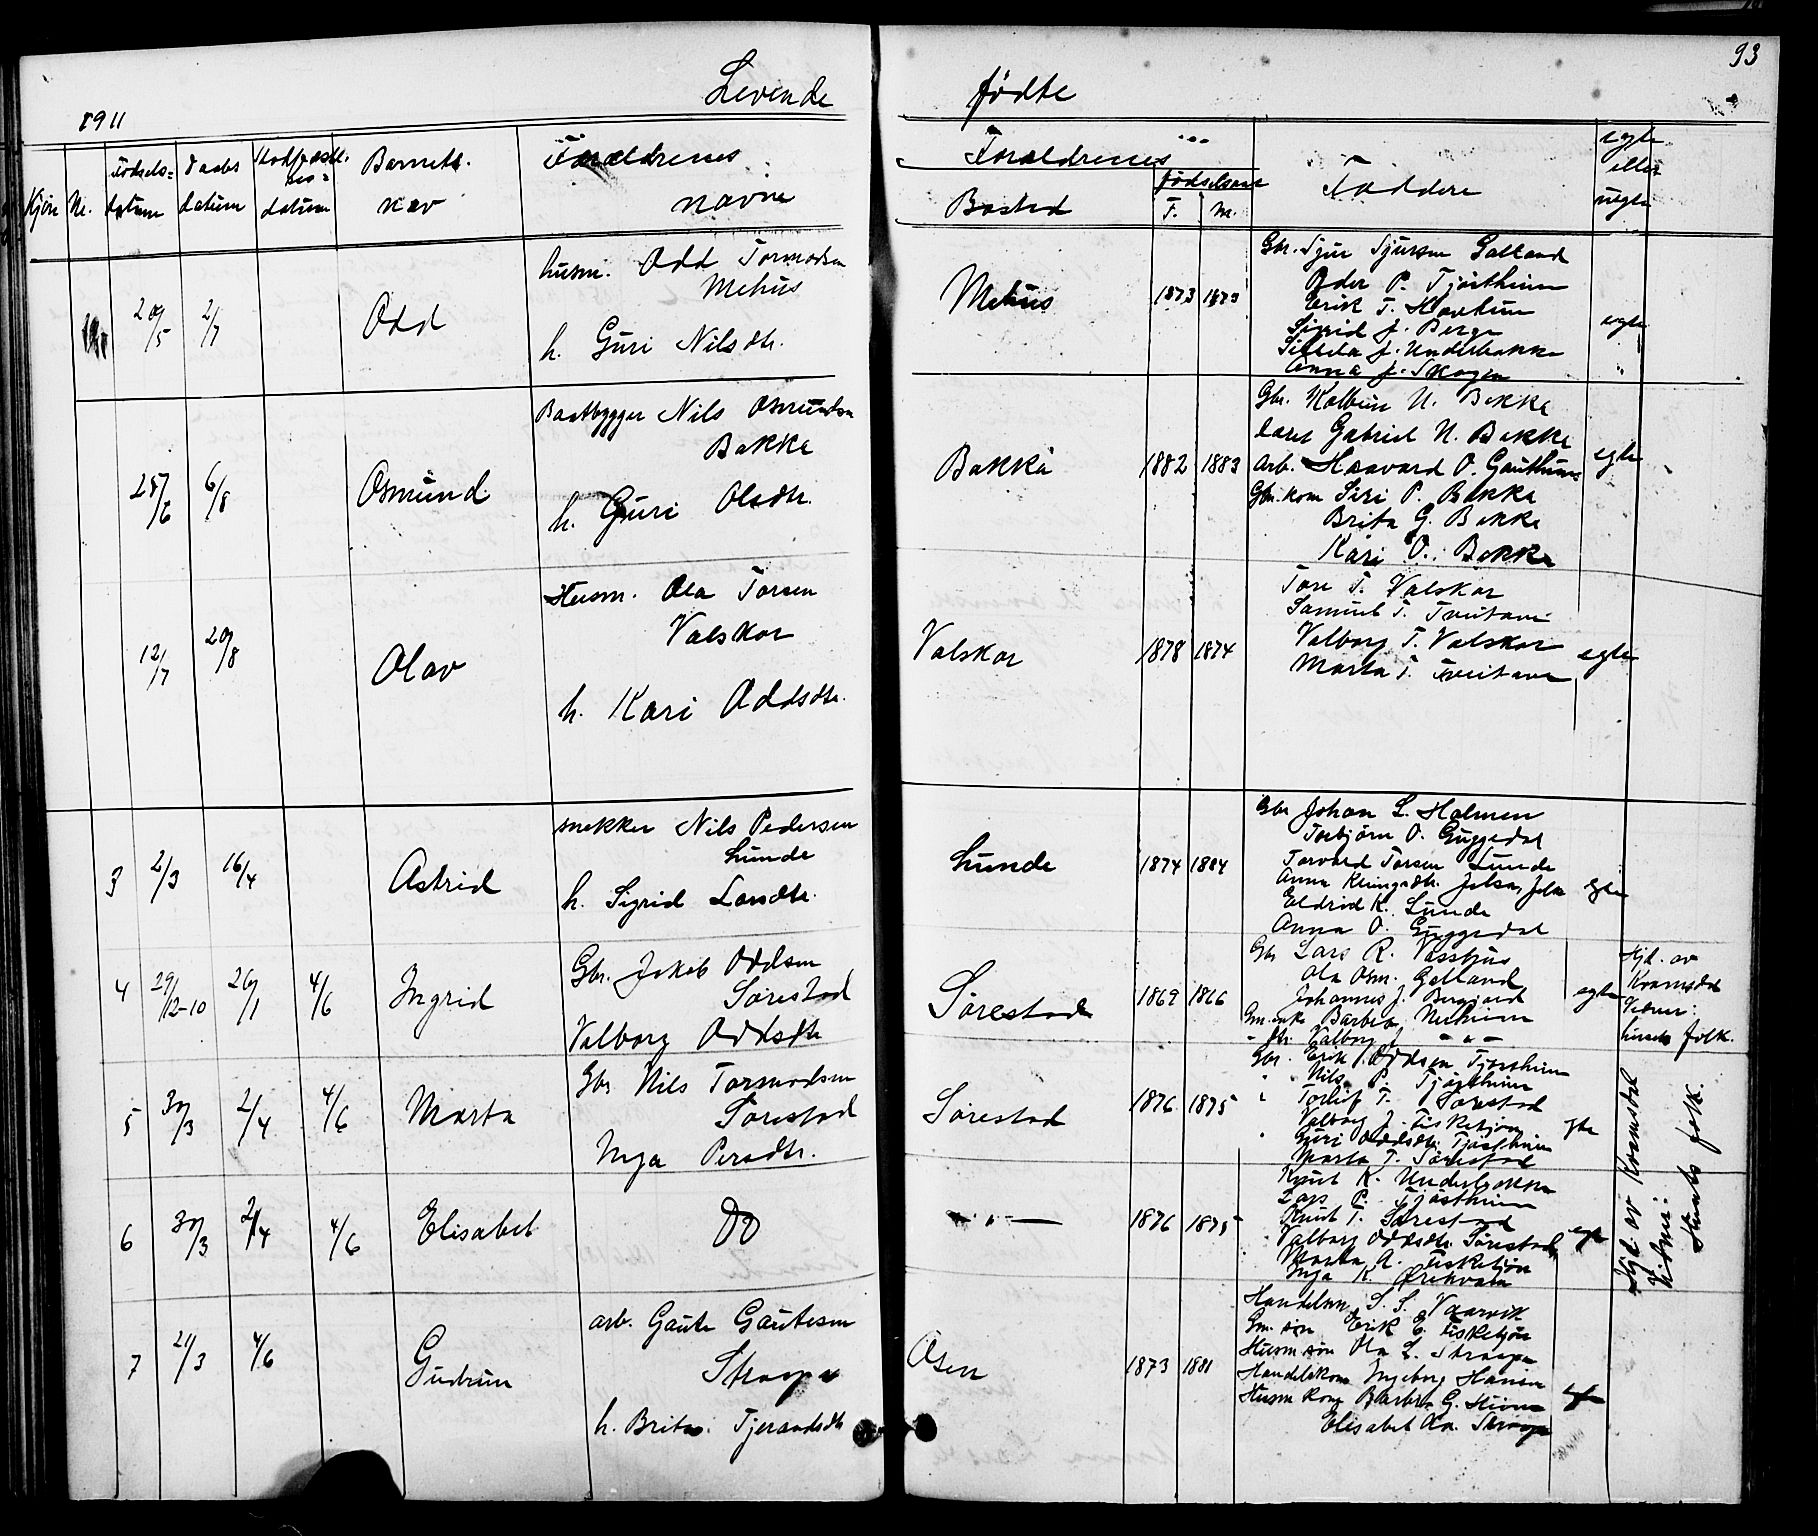 93
Levende fødte
1911
Kjøn Nr. Fødsels= datum Daabs datum Stadfæstel ses= datum Barnets navn Forældrenes navne
Forældrenes Bosted Fødselsaar F. M. Faddere egte eller uegte
20/5 2/7 Odd
husm. Odd Tormodsen
Mehus
h. Guri Nilsdtr.
Mehus 1873 1873
Gbr. Sjur Sjursen Galland
Peder P. Tjøstheim
Erik T. Havtun
Sigrid J. Berge
J. Underbakke
Anna J. Skogen
egte
25/6 6/8 Osmund
Baatbygger Nils Osmundsen
Bakke
h. Guri Olsdtr.
Bakka 1882 1883
Gbr. Kolbein N. Bakke
Gabriel N. Bakke
Arb. Haavard O. Gauthun
Gbr. kone Siri P. Bakka
Brita G. Bakke
Kari O. Bakke
egte
12/7 20/8 Olav
Husm. Ola Torsen
Valskar
h. Kari Oddsdtr.
Valskar 1878 1874
Tore T. Valskar
Samuel T. Tveitane
Valborg T. Valskar
Marta T. Tveitane
egte
3 2/3 16/4 Astrid
snekker Nils Pedersen
Lunde
h. Sigrid Larsdtr.
Lunde 1874 1884
Gbr Johan L. Holmen
Torbjørn O. Guggedal
Torvald Torsen Lunde
Anna Jelsa, Jelse
Eldrid K. Lunde
Anna O. Guggedal
egte
4 29/12-10 26/1 4/6 Ingrid
Gbr. Jakob Oddsen
Sørestad
Valborg Oddsdtr
Sørestad 1869 1866
Gbr Lars R. Vasshus
Ola Osm. Galland
Johannes J.
Gm. enke Barbra
Valborg J. - " -
egte
Hjd. av
Kvamsdal
Vidner:
husets folk.
5 30/3 2/4 4/6 Marta
Gbr Nils Tormodsen
Sørestad
Inga Persdtr.
Sørestad 1876 1875
Gbr. Erik Oddsen Tjøstheim
" Nils P. Tjøstheim
" Torleif T. Sørestad
Valborg J. Fisketjøn
" Guri Oddsdtr. Tjøstheim
Marta T. Sørestad
egte
6 30/3 2/4 4/6 Elisabet
Do
- " - 1876 1875
Knut K. Underbakke
Lars P. Tjøstheim
Knut T. Sørestad
Valborg Oddsdtr. Sørestad
Marta A. Fisketjøn
Inga K.
egte
Hjd. av Kvamsdal
Vidner:
Husets folk.
7 21/3 4/6 Gudrun
arb. Gaute Gautesen
Straapa
h. Brita Tjerandsdtr
Osen 1873 1881
Handelsm. S. S. Vaarvik
Gm. søn Erik E. Fisketjøn
Husm søn Ola L. Straapa
Handelskone Ingeborg Hansen
Husm kone Barbra G.
Elisabet Straapa